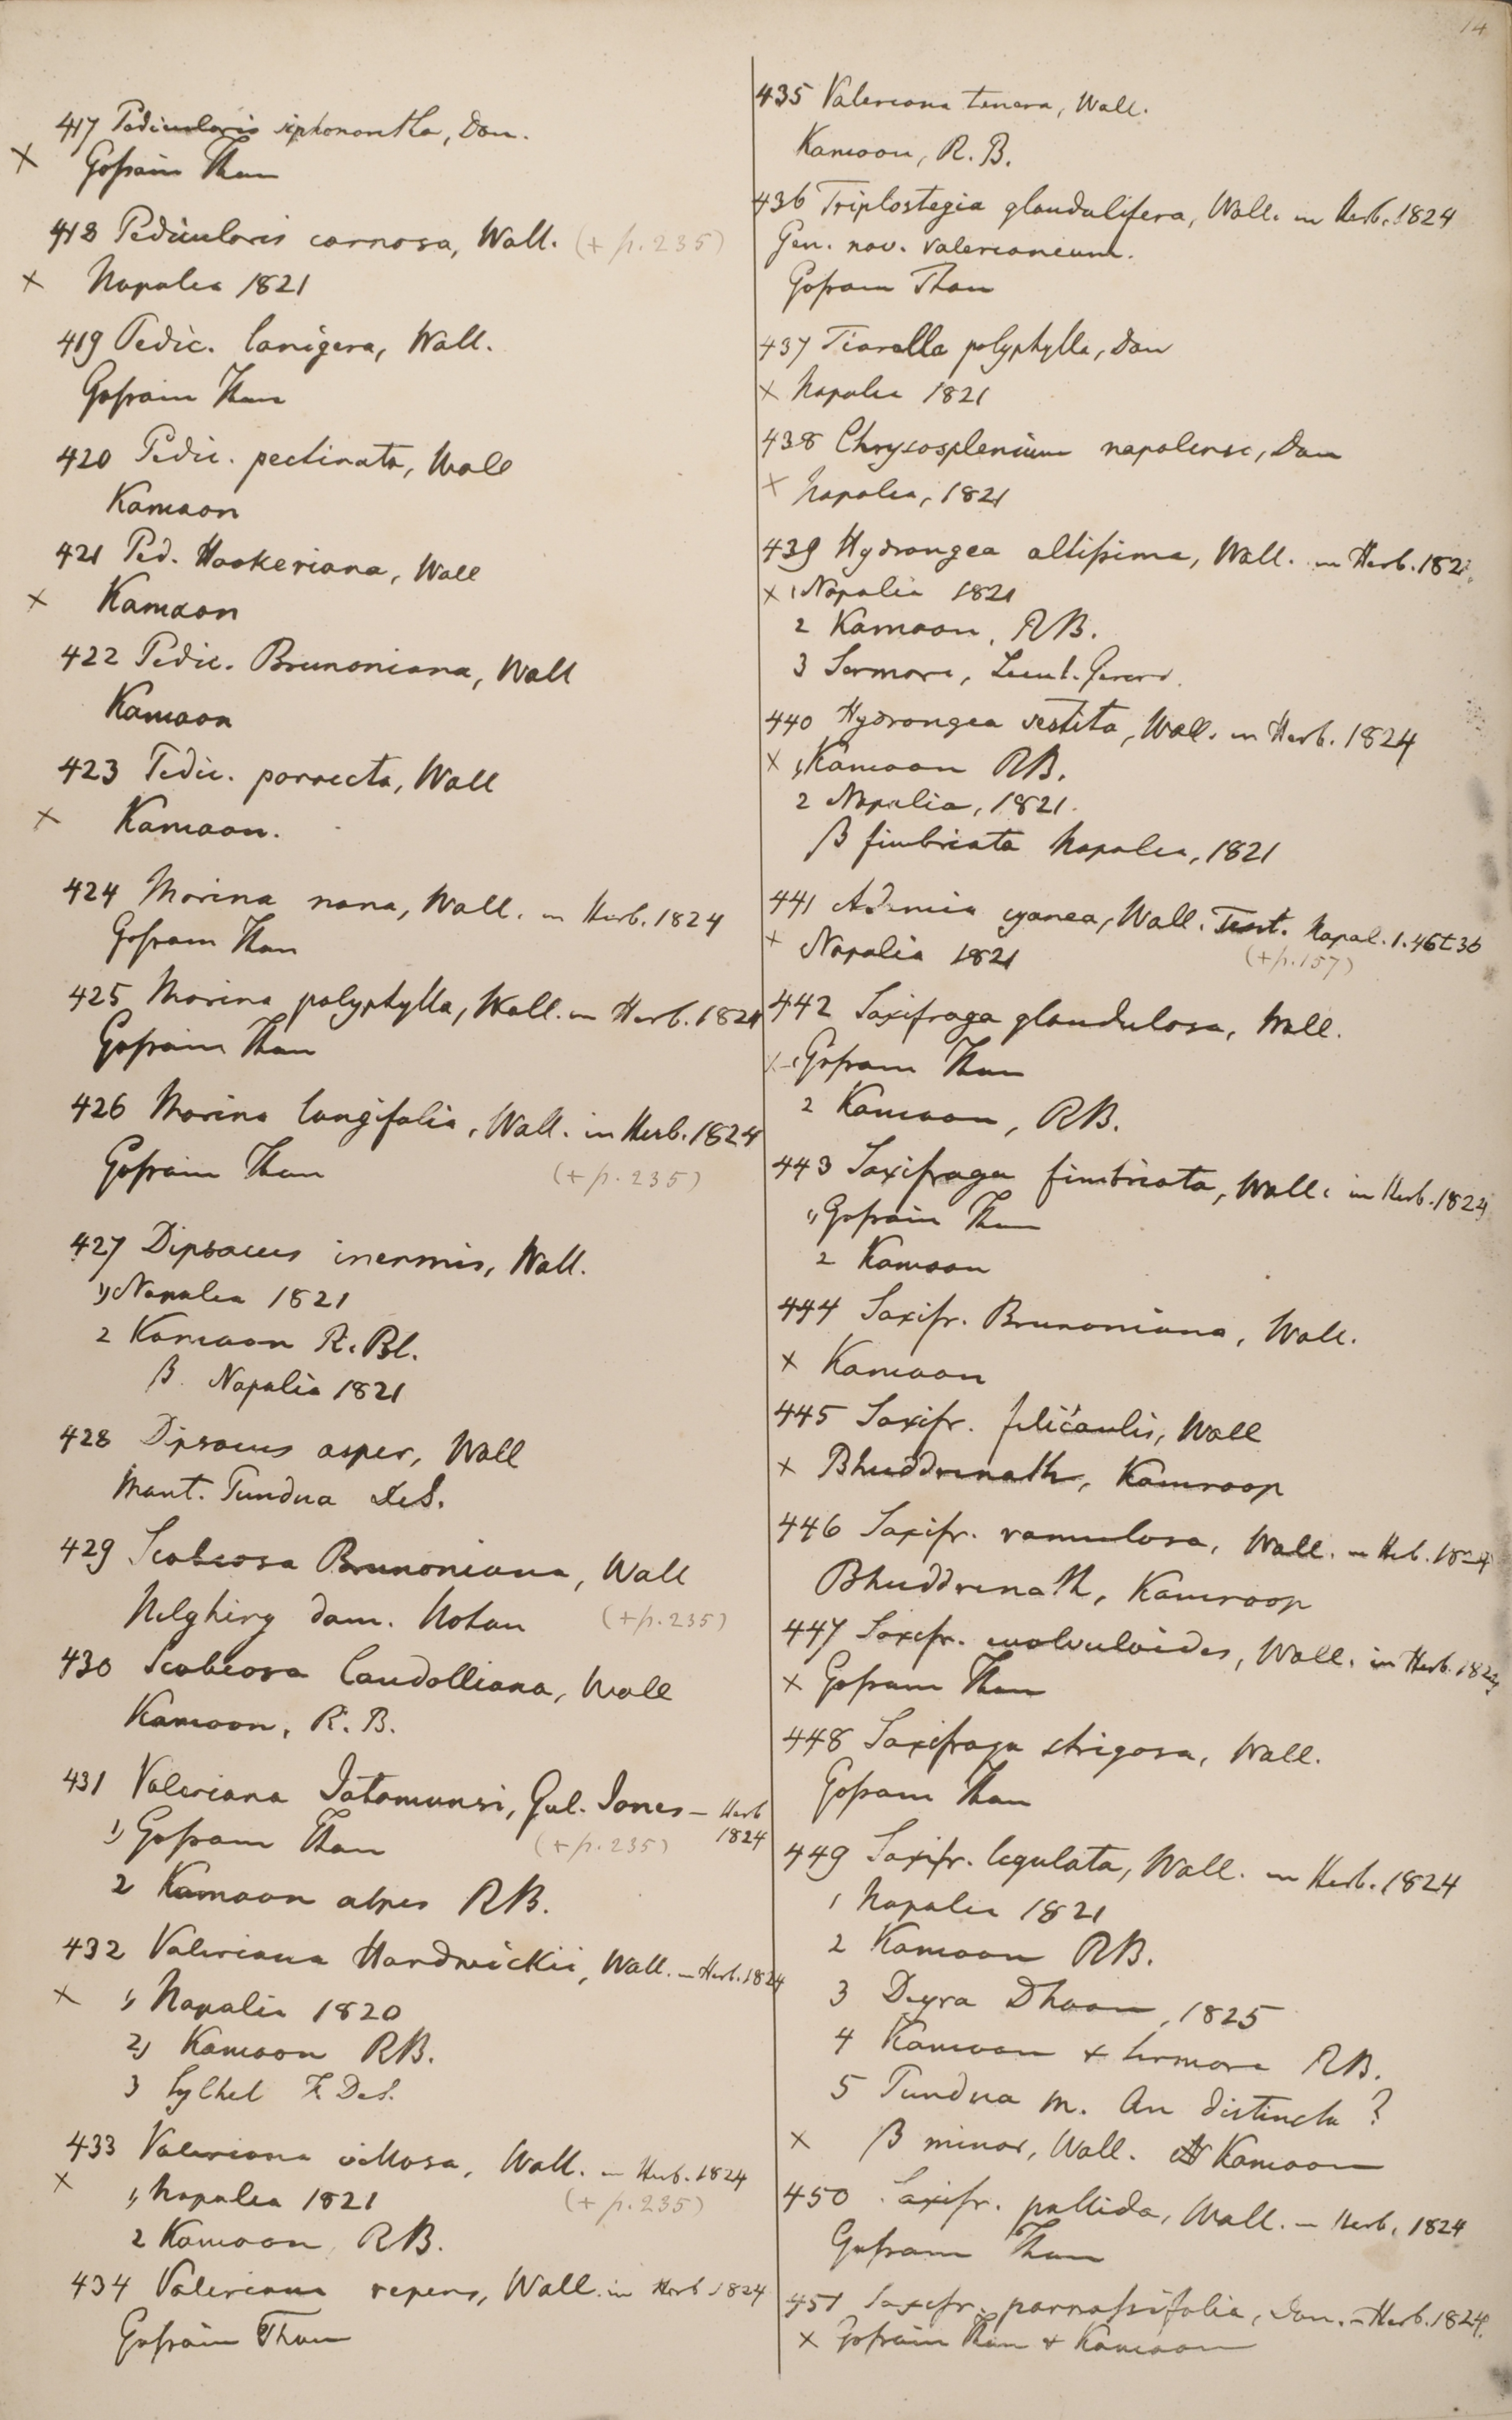 14
417 Pedicularis siphonantha, Don.
× Gossain Than
418 Pedicularis carnosa, Wall. (+ p. 235)
× Napalia 1821
419 Pedic. lanigera, Wall.
Gossain Than
420 Pedic. pectinata, Wall
Kamaon
421 Ped. Hookeriana, Wall
× Kamaon
422 Pedic. Brunoniana, Wall
Kamaon
423 Pedic. porrecta, Wall
× Kamaon.
424 Morina nana, Wall. in Herb. 1824
Gossain Than
425 Morina polyphylla, Wall. in Herb. 1824
Gossain Than
426 Morina longifolia, Wall. in Herb. 1824
Gossain Than (+ p. 235)
427 Dipsacus inermis, Wall.
1) Napalia 1821
2 Kamaon R. Bl.
β Napalia 1821
428 Dipsacus asper, Wall
Mont. Tundua DeS.
429 Scabiosa Brunoniana, Wall
Nelghiry dom. Noton (+ p. 235)
430 Scabiosa Candolliana, Wall
Kamaon, R. B.
431 Valeriana Jatamunsi, Gul. Jones – Herb
1824
1) Gossain Than (+ p. 235)
2 Kamaon alpes RB.
432 Valeriana Hardwickii, Wall. in Herb. 1824
× 1) Napalia 1820
2) Kamaon RB.
3 Sylhet F. DeS.
433 Valeriana villosa, Wall. in Herb. 1824
× 1) Napalia 1821 (+ p. 235)
2 Kamaon RB.
434 Valeriana repens, Wall. in Herb 1824
Gossain Than
435 Valeriana tenera, Wall.
Kamaon, R. B.
436 Triplostegia glandulifera, Wall. in Herb. 1824
Gen. nov. valerianeum.
Gossain Than
437 Tiarella polyphylla, Don
× Napalia 1821
438 Chrysosplenium napalense, Don
× Napalia, 1821
439 Hydrangea altissima, Wall. in Herb. 182
× 1 Napalia 1821
2 Kamaon, RB.
3 Sermore, Lieut. Gerard.
440 Hydrangea vestita, Wall. in Herb. 1824
× 1) Kamaon RB.
2 Napalia, 1821.
β fimbriata Napalia, 1821
441 Adamia cyanea, Wall. Tent. Napal. 1. 46 t 36
× Napalia 1821 (+ p. 157)
442 Saxifraga glandulosa, Wall.
× 1 Gossain Than
2 Kamaon, RB.
443 Saxifraga fimbriata, Wall. in Herb. 1824
1) Gossain Than
2 Kamaon
444 Saxifr. Brunoniana, Wall.
× Kamaon
445 Saxifr. filicaulis, Wall
× Bhuddrinath, Kamroop
446 Saxifr. ramulosa, Wall. in Herb. 1824
Bhuddrinath, Kamroop
447 Saxifr. evolvuloides, Wall. in Herb. 1824
× Gossain Than
448 Saxifraga strigosa, Wall.
Gossain Than
449 Saxifr. ligulata, Wall. in Herb. 1824
1 Napalia 1821
2 Kamaon RB.
3 Deyra Dhoon, 1825
4 Kamaon + Sirmore RB.
5 Tundua M. An distincta ?
× β minor, Wall. Kamaon
450 Saxifr. pallida, Wall. in Herb. 1824
Gossain Than
451 Saxifr. parnassifolia, Don. in Herb. 1824.
× Gossain Than + Kamaon